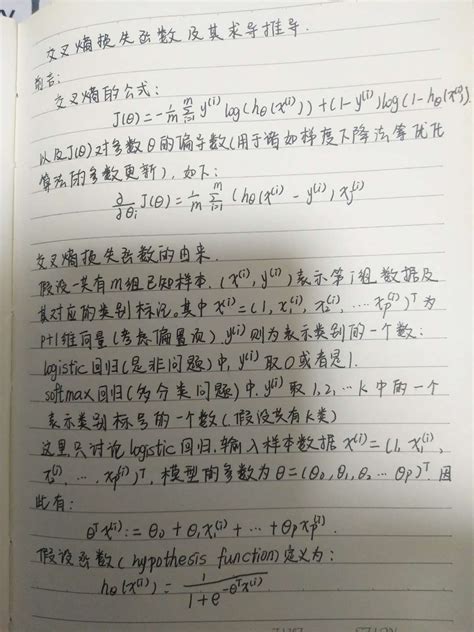 交叉熵损失函数及其求导推导.
前言:
交叉熵的公式:
J(θ)=-1/m Σ_{i=1}^{m} y^{(i)} log(h_θ(x^{(i)}))+(1-y^{(i)})log(1-h_θ(x^{(i)}))
以及J(θ)对参数θ的偏导数(用于诸如梯度下降法等优化
算法的参数更新),如下:
∂/∂θ_j J(θ)=1/m Σ_{i=1}^{m} (h_θ(x^{(i)}-y^{(i)})x_j^{(i)}
交叉熵损失函数的由来.
假设一共有m组已知样本,(x^{(i)},y^{(i)})表示第i组数据及
其对应的类别标记。其中x^{(i)}=(1,x_1^{(i)},x_2^{(i)},…x_p^{(i)})^T为
p+1维向量(考虑偏置项),y^{(i)}则为表示类别的一个数:
logistic回归(是非问题)中,y^{(i)}取0或者是1.
softmax回归(多分类问题)中,y^{(i)}取1,2,…k中的一个
表示类别标号的一个数(假设共有k类)
这里只讨论logistic回归,输入样本数据x^{(i)}=(1,x_1^{(i)},
x_2^{(i)},…,x_p^{(i)})^T,模型的参数为θ=(θ_0,θ_1,θ_2…θ_p)^T.因
此有:
θ^T x^{(i)}:=θ_0+θ_1x_1^{(i)}+…+θ_px_p^{(i)}.
假设函数(hypothesis function)定义为:
h_θ(x^{(i)})=1/(1+e^{-θ^T x^{(i)}})